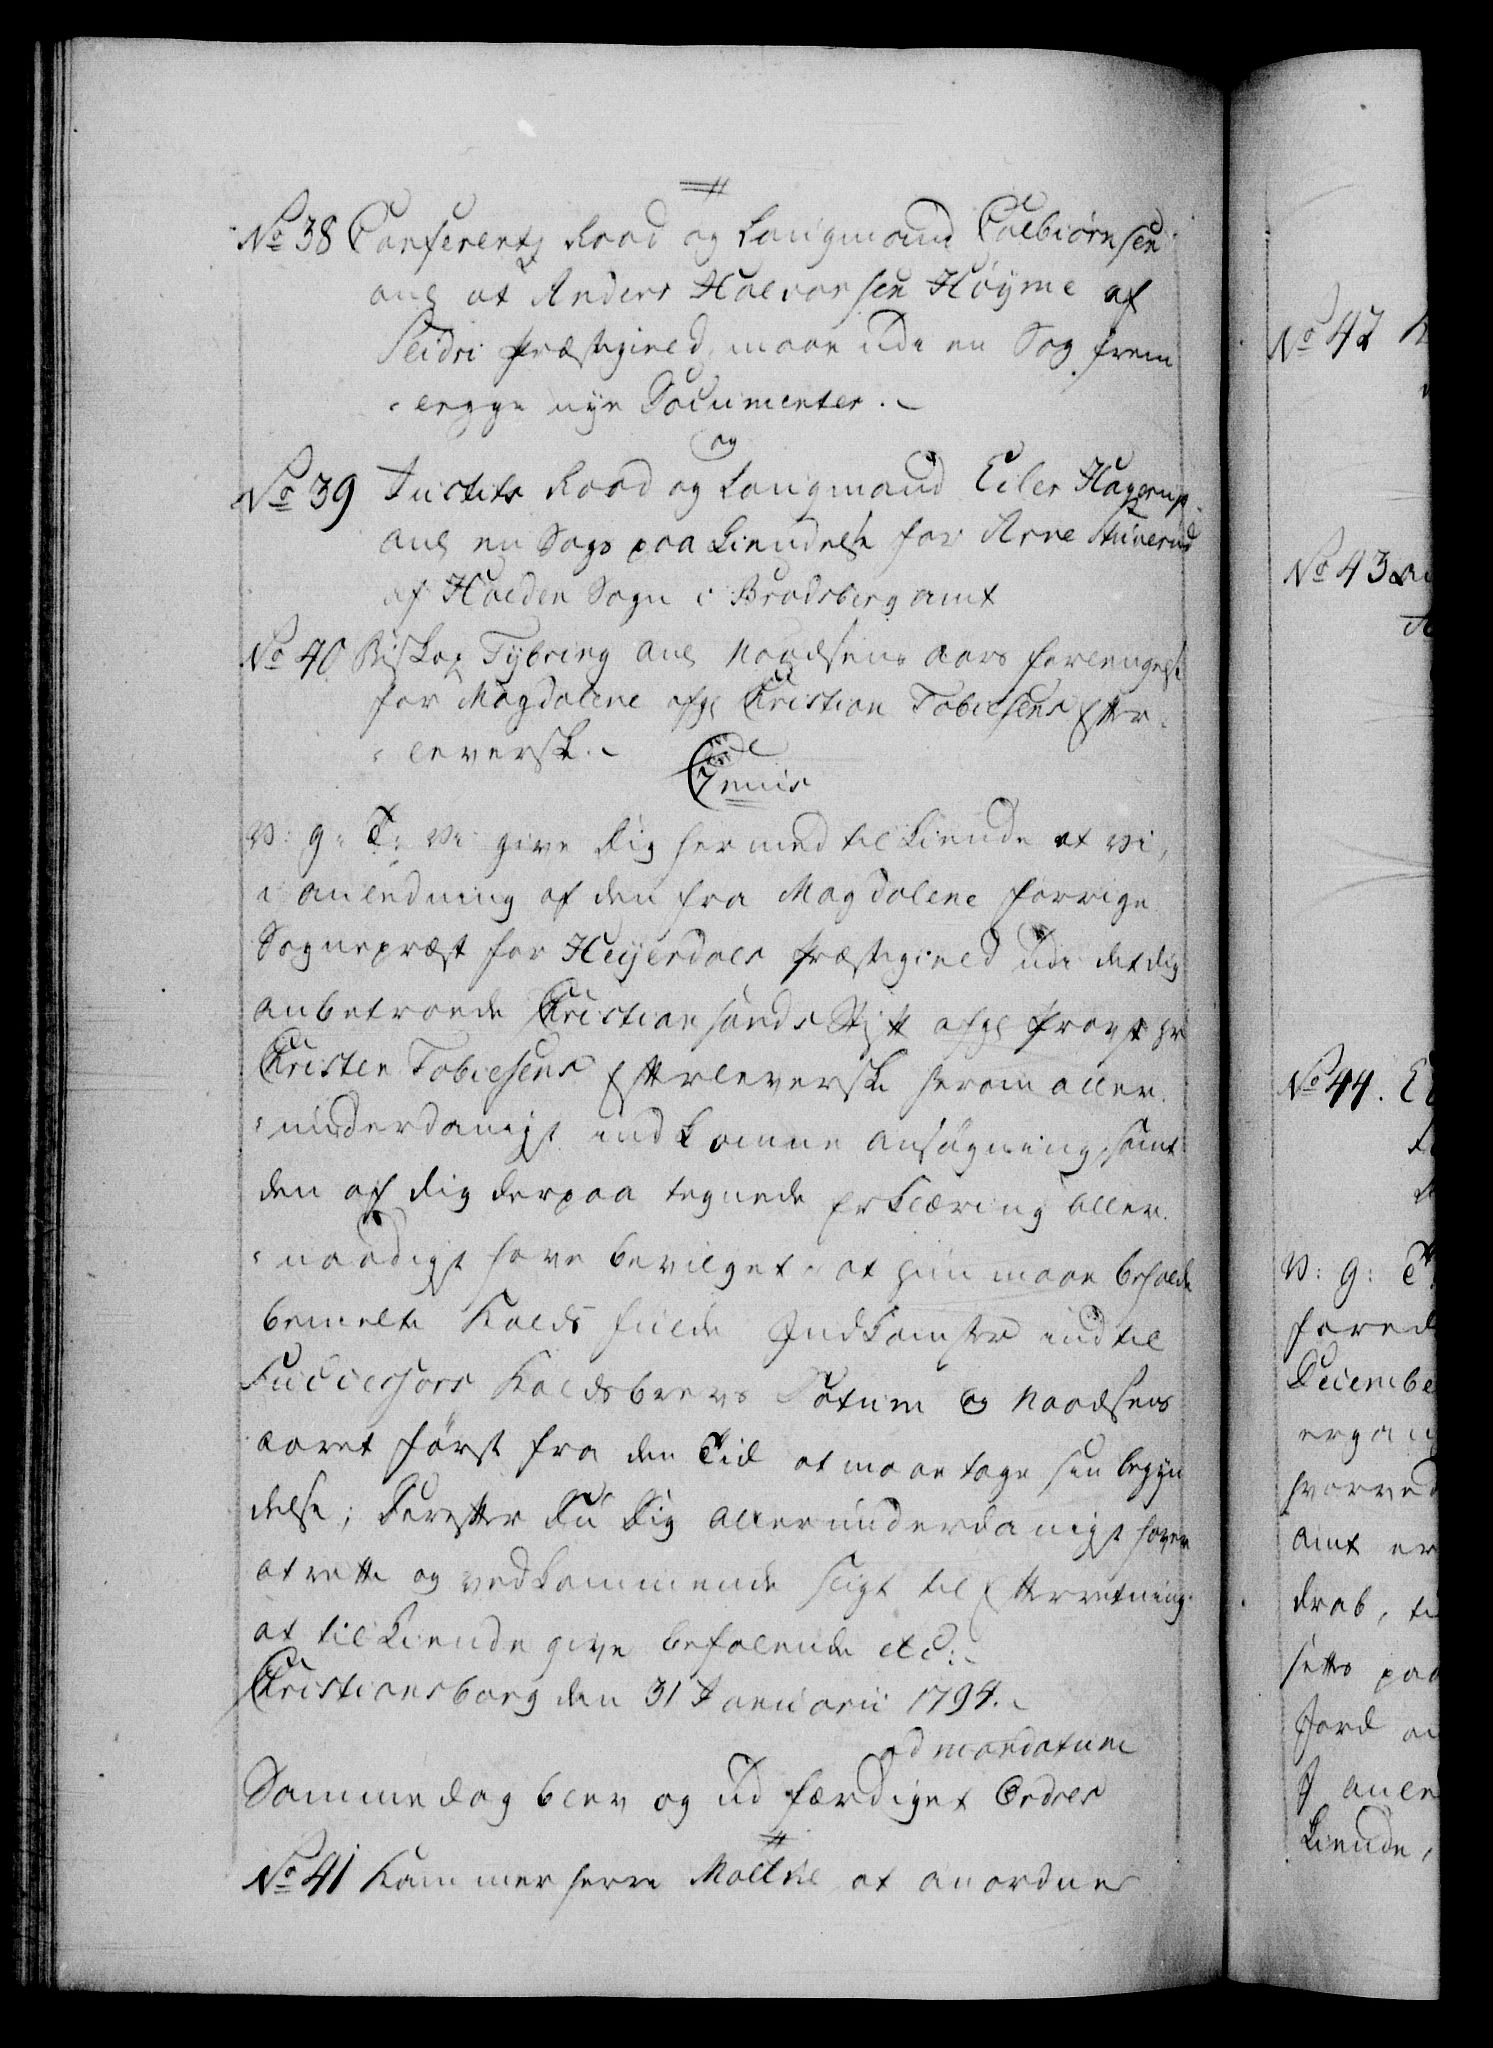 No 38 Conferentz Raad og Laugmand Colbiørnsen
ang at Anders Halvorsen Høyme af
Slidri Præstegield, maae udi en Sag frem
-legge nye Documenter.
og
No 39 Justits Raad og Laugmand Eiler Hagerup
ang en Sags paa Kiendelse for Arne
af Holden Sogn i Bradsberg amt
No 40 Biskop Tybring ang Naadsens aars forlengelse
for Magdalene afg Christian Tobiesens Efter-
-leverske.
Genis
V: G: T: Vi give Dig hermed tilkiende at vi,
i anledning af den fra Magdalene forrige
Sognepræst for Heyerdals Præstegield udi det dig
anbetroede Christiansands Stift afg Provst Hr
Christen Tobiesens Efterleverske herom aller-
-underdanigst indkomne ansøgning, samt
den af dig derpaa tegnede Erklæring aller-
-naadigst have bevilget at hun maae beholde
bemelte Kalds fulde Indkomster indtil
Successors Kaldsbrevs Datum og Naadsens
aaret først fra den Tid at maae tage sin begyn
delse; Derefter Du Dig allerunderdanigst haver
at rette og vedkommende sligt til Efterretning
at tilkiendegive befalende etc:
Christiansborg den 31 Januarii 1794.
ad mandatum
Samme dag blev og udfærdiget Ordres
No 41 Kammerherre Moltke at anordne
No 42
No 43
No 44.
V: G: T:
Decembe
hvorved
amt er
drab, ti
paa
Jord
Kiende,